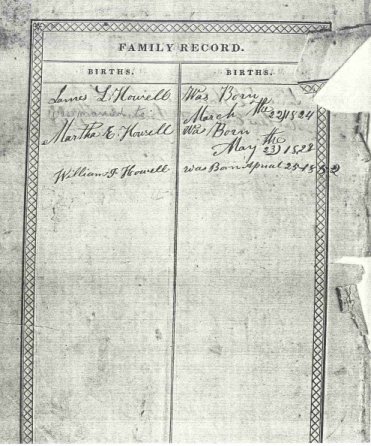 FAMILY RECORD.
BIRTHS. BIRTHS.
James L Howell Was Born
March the 22 1824
married to
Martha E Howell Was Born
May the 23 1828
William J Howell was Born Apriel 25 18